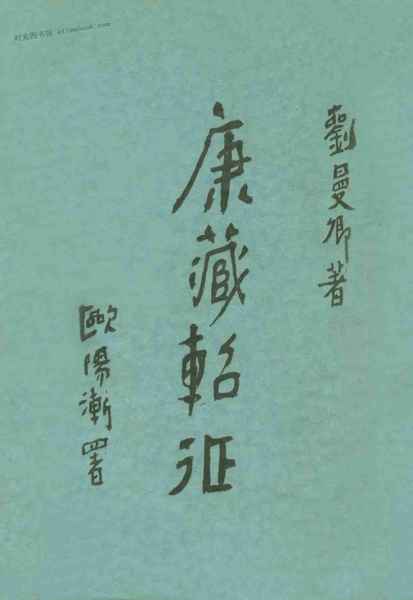 劉曼卿著
康藏軺征
歐陽漸署